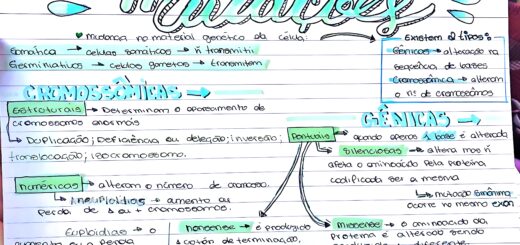 Mutações
♥ Mudança no material genético da célula.
Somática → células somáticas → ñ transmiti
Germinativas → células gametas → transmitem
Existem 2 tipos:
Gênicas → alteração na
sequência de bases
Cromossômica → alteram
o nº de cromossomos
CROMOSSÔMICAS →
Estruturais → Determinam o aparecimento de
cromossomos anormais
↳ Duplicação; Deficiência ou deleção; inversão;
translocação; isocromossomo.
numéricas → alteram o número de cromosso.
↳ Aneuploidias → aumento ou
perda de 1 ou + cromossomos.
Euploidias → o
aumento ou a perda
GÊNICAS →
Pontuais → quando apenas 1 base é alterada
↳ Silenciosas → altera mas ñ
afeta o aminoácido pela proteína
codificada ser a mesma
↳ mutação sinônima
ocorre no mesmo exon
nonsense → é produzido
códon de terminação,
missense → o aminoácido da
proteína é alterado sendo